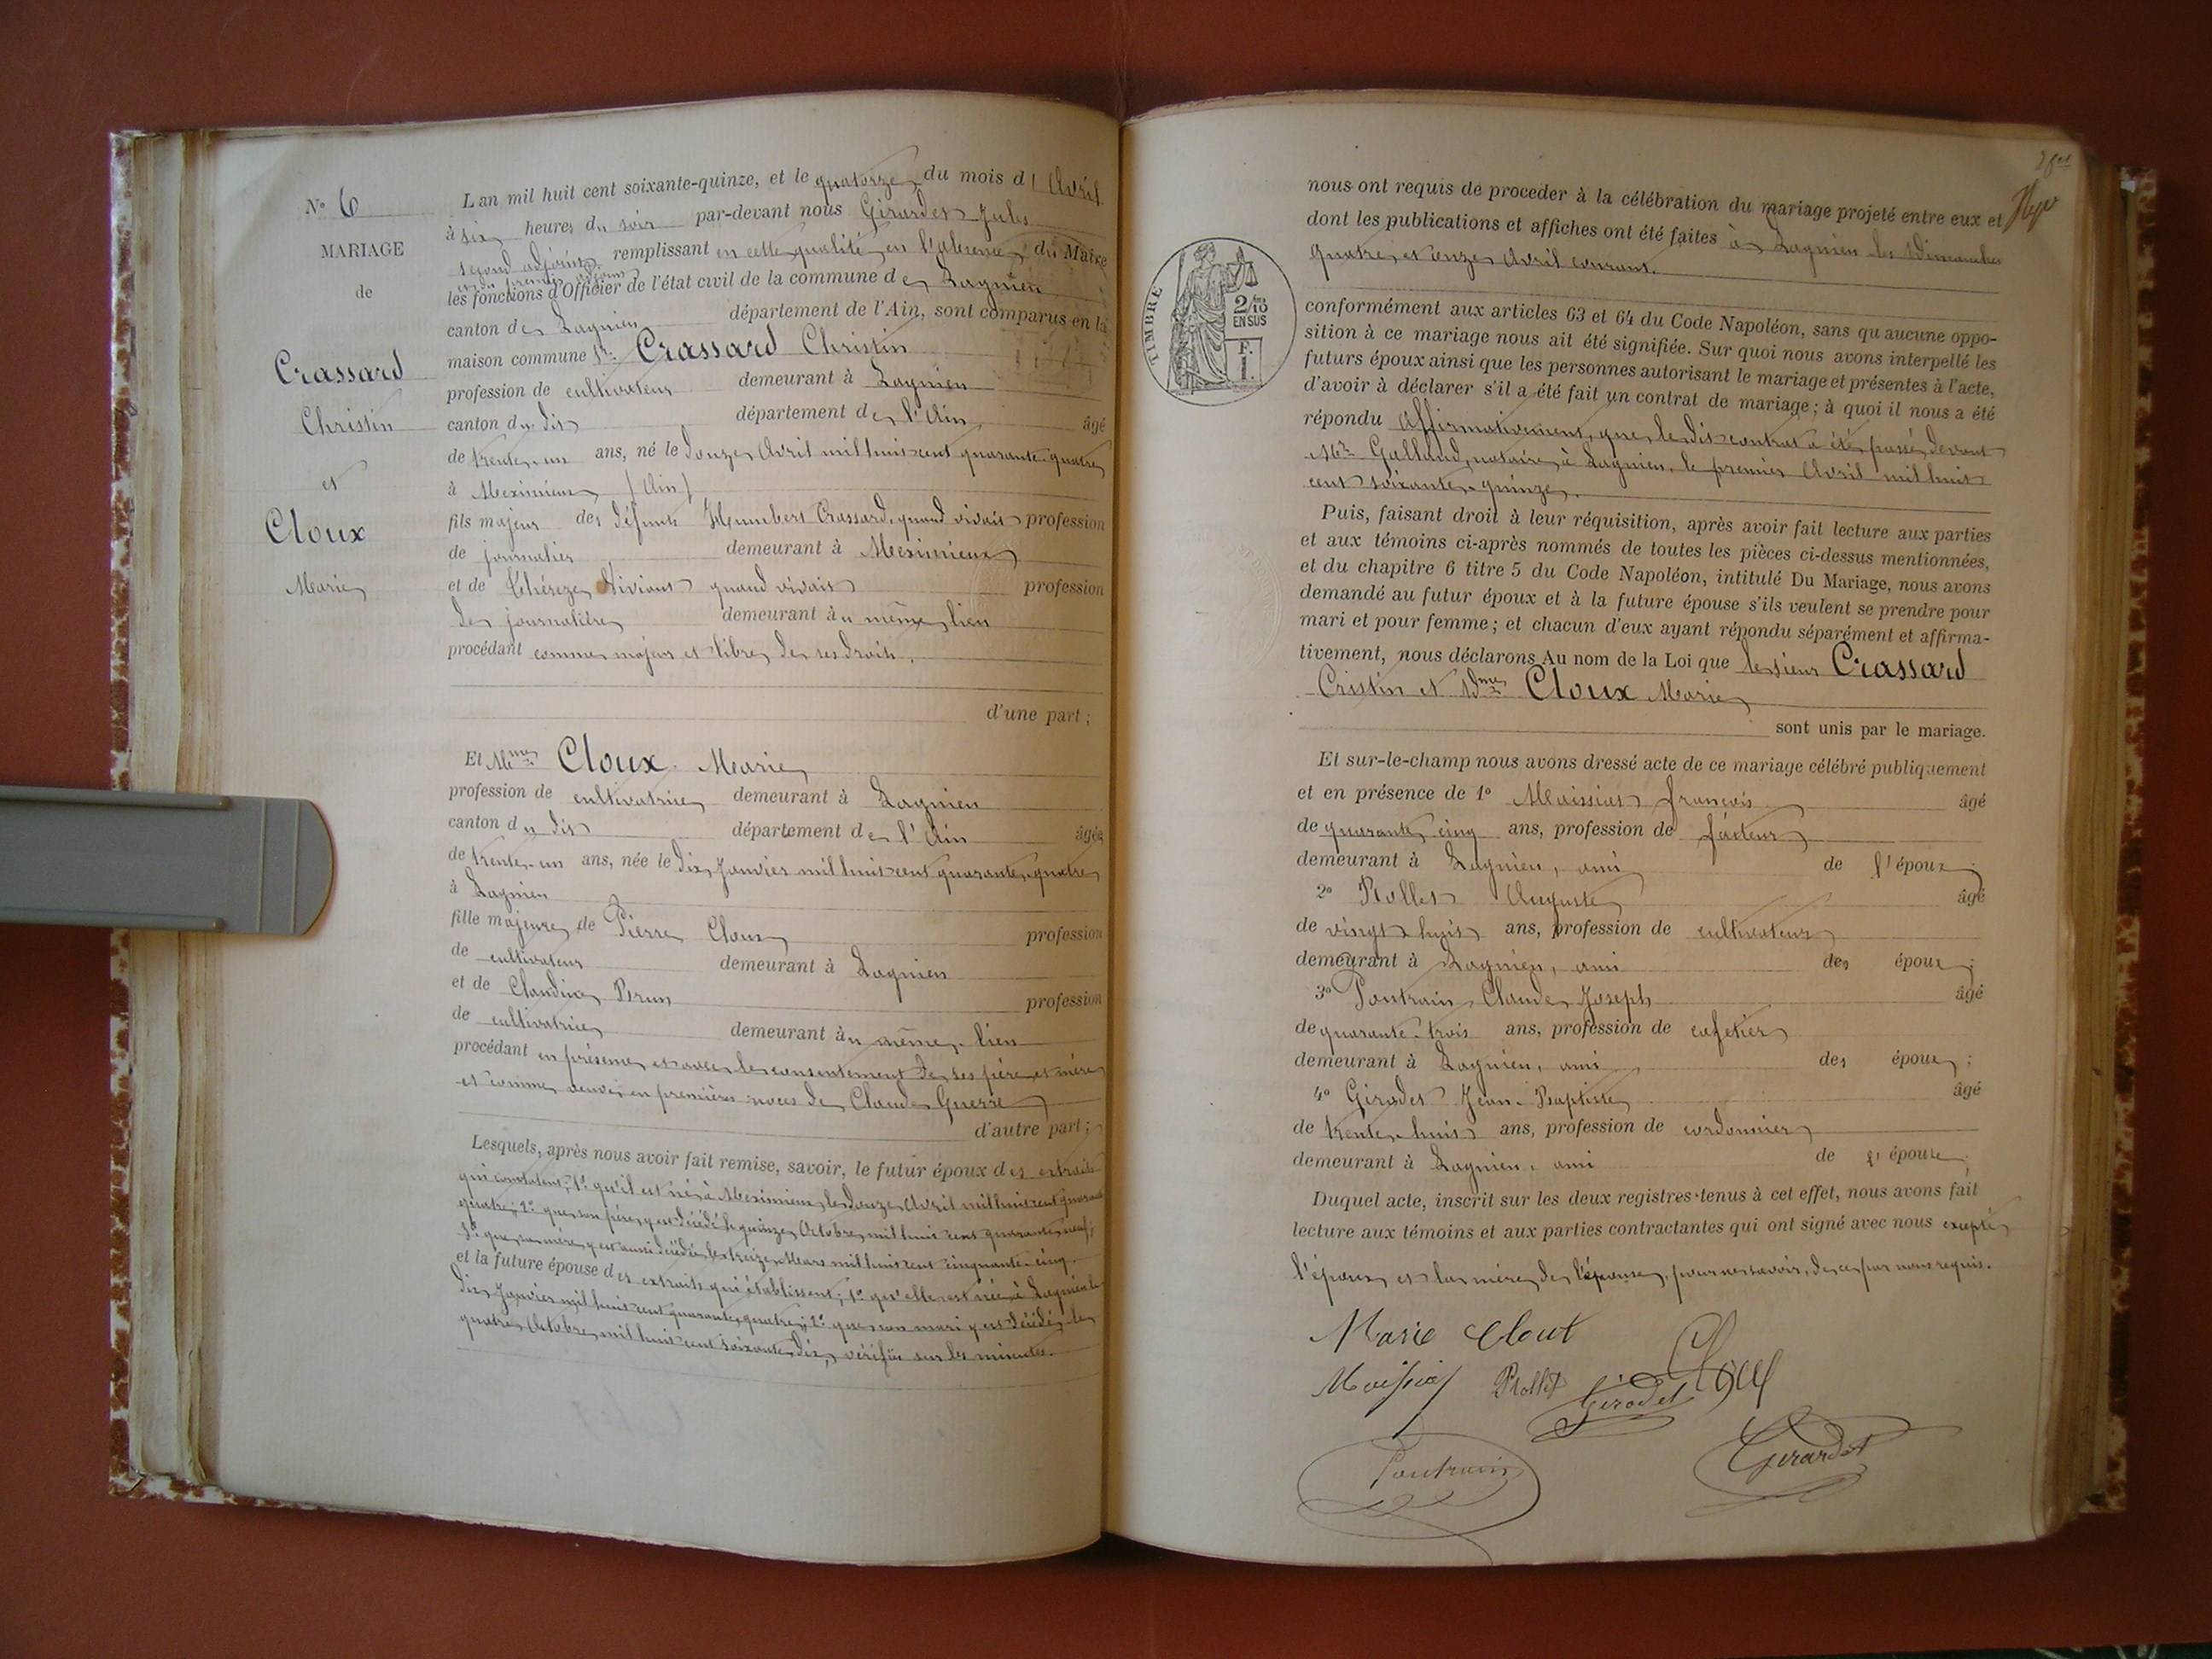 N° 6
MARIAGE
de
Crassard
Christin
et
Cloux
Marie
L'an mil huit cent soixante-quinze, et le quatorze du mois d'Avril
à six heures du soir par-devant nous Girardet Jules
second adjoint remplissant en cette qualité en l'absence du Maire
et du premier adjoint
les fonctions d'Officier de l'état civil de la commune de Lagnieu
canton de Lagnieu département de l'Ain, sont comparus en la
maison commune Sr. Crassard Christin
profession de cultivateur demeurant à Lagnieu
canton du dit département de l'Ain âgé
de trente-un ans, né le douze Avril mil huit cent quarante-quatre
à Meximieux (Ain)
fils majeur des défunts Humbert Crassard, quand vivait profession
de journalier demeurant à Meximieux
et de Thérèze quand vivait profession
de journalière demeurant au même lieu
procédant comme majeur et libre de ses droits.
d'une part ;
Et Mme Cloux Marie
profession de cultivatrice demeurant à Lagnieu
canton du dit département de l'Ain âgée
de trente-un ans, née le dix Janvier mil huit cent quarante-quatre
à Lagnieu
fille majeure de Pierre Cloux profession
de cultivateur demeurant à Lagnieu
et de Claudine Perun profession
de cultivatrice demeurant au même lieu
procédant en présence et avec le consentement de ses père et mère
et comme veuve en premières noces de Claude Guerre
d'autre part ;
Lesquels, après nous avoir fait remise, savoir, le futur époux des extraits
qui constatent, 1° qu'il est né à Meximieux le douze Avril mil huit cent quarante
quatre ; 2° que son père y est décédé le quinze Octobre mil huit cent quarante-neuf ;
3° que sa mère y est aussi décédée le treize Mars mil huit cent cinquante-cinq.
et la future épouse des extraits qui établissent ; 1° qu'elle est née à Lagnieu le
dix Janvier mil huit cent quarante-quatre ; 2° que son mari y est décédé le
quatre Octobre mil huit cent soixante-dix, vérifiés sur les minutes.
nous ont requis de proceder à la célébration du mariage projeté entre eux et
dont les publications et affiches ont été faites à Lagnieu les Dimanches
quatre et onze Avril courant.
TIMBRE
2/10
EN SUS
F.
1.
conformément aux articles 63 et 64 du Code Napoléon, sans qu'aucune oppo-
sition à ce mariage nous ait été signifiée. Sur quoi nous avons interpellé les
futurs époux ainsi que les personnes autorisant le mariage et présentes à l'acte,
d'avoir à déclarer s'il a été fait un contrat de mariage ; à quoi il nous a été
répondu affirmativement, que le dit contrat a été passé devant
Me Galland, notaire à Lagnieu, le premier Avril mil huit
cent soixante-quinze.
Puis, faisant droit à leur réquisition, après avoir fait lecture aux parties
et aux témoins ci-après nommés de toutes les pièces ci-dessus mentionnées,
et du chapitre 6 titre 5 du Code Napoléon, intitulé Du Mariage, nous avons
demandé au futur époux et à la future épouse s'ils veulent se prendre pour
mari et pour femme ; et chacun d'eux ayant répondu séparément et affirma-
tivement, nous déclarons Au nom de la Loi que le sieur Crassard
Cristin et Dme Cloux Marie
sont unis par le mariage.
Et sur-le-champ nous avons dressé acte de ce mariage célébré publiquement
et en présence de 1° Maissiat françois âgé
de quarante cinq ans, profession de facteur
demeurant à Lagnieu, ami de l'époux ;
2° Rollet Auguste âgé
de vingt huit ans, profession de cultivateur
demeurant à Lagnieu, ami des époux ;
3° Pontrain Claude Joseph âgé
de quarante-trois ans, profession de cafetier
demeurant à Lagnieu, ami des époux ;
4° Girodet Jean-Baptiste âgé
de trente-huit ans, profession de cordonnier
demeurant à Lagnieu, ami de l'époux ;
Duquel acte, inscrit sur les deux registres tenus à cet effet, nous avons fait
lecture aux témoins et aux parties contractantes qui ont signé avec nous excepté
l'époux et la mère de l'épouse, pour ne savoir, de ce par nous requis.
Marie Clout
Maissiat Rollet Girodet Cloux
Pontrain Girardet